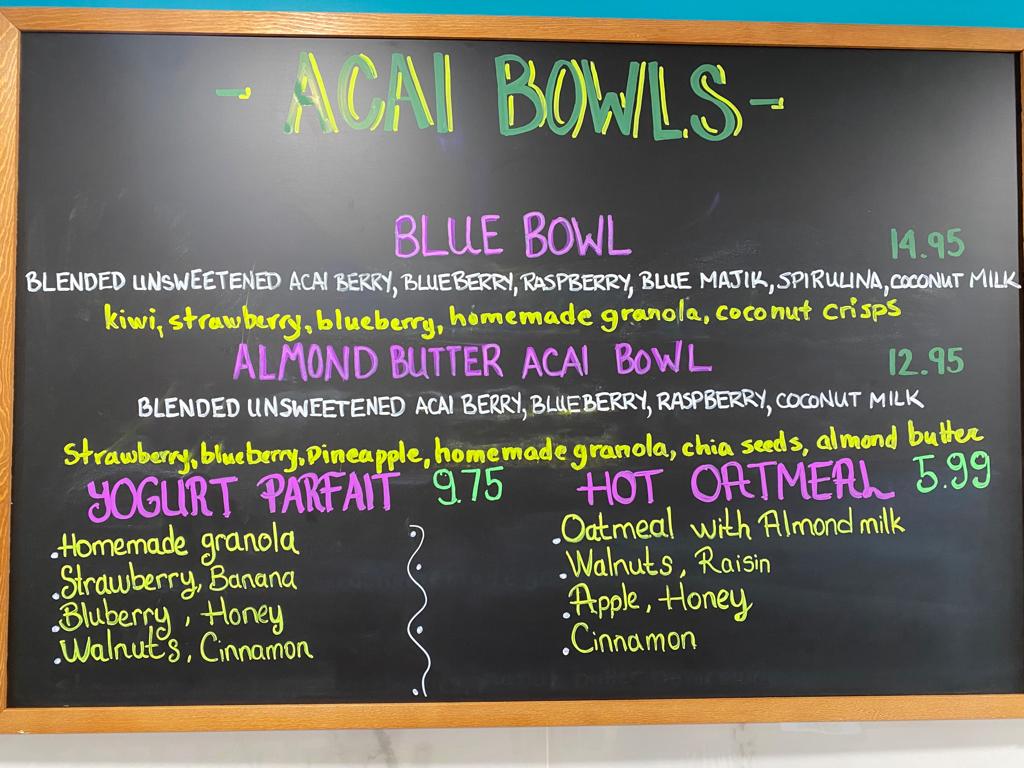 - ACAI BOWLS -
BLUE BOWL 14.95
BLENDED UNSWEETENED ACAI BERRY, BLUEBERRY, RASPBERRY, BLUE MAJIK, SPIRULINA, COCONUT MILK
kiwi, strawberry, blueberry, homemade granola, coconut crisps
ALMOND BUTTER ACAI BOWL 12.95
BLENDED UNSWEETENED ACAI BERRY, BLUEBERRY, RASPBERRY, COCONUT MILK
Strawberry, blueberry, Pineapple, homemade granola, chia seeds, almond butter
YOGURT PARFAIT 9.75
.Homemade granola
.Strawberry, Banana
.Bluberry, Honey
.Walnuts, Cinnamon
HOT OATMEAL 5.99
.Oatmeal with Almond milk
.Walnuts, Raisin
.Apple, Honey
.Cinnamon